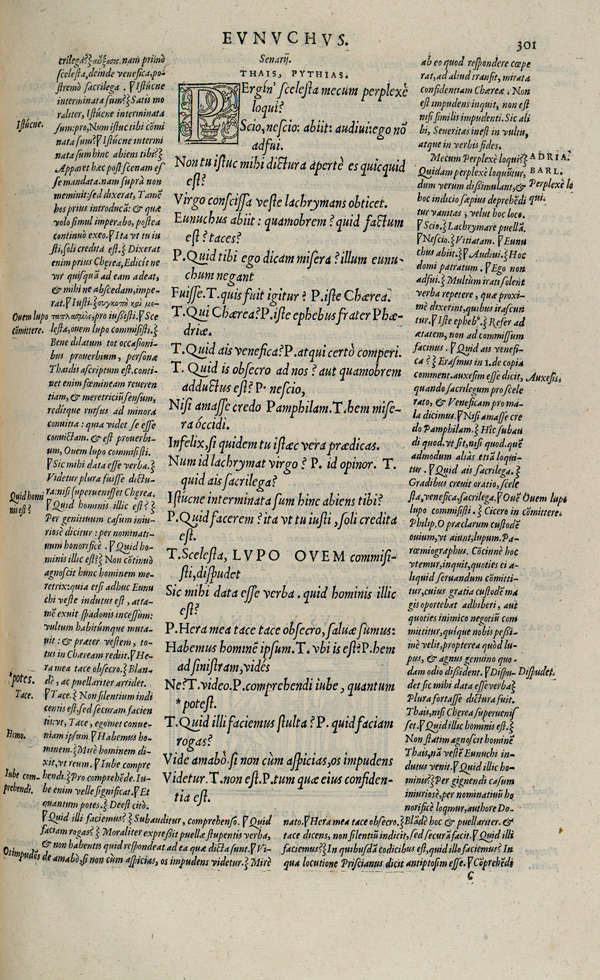 EVNVCHVS.
301
Senarij.
THAIS, PYTHIAS.
PErgin' scelesta mecum perplexè
loqui?
Scio, nescio: abiit: audiui: ego nō
adfui.
Non tu istuc mihi dictura apertè es quicquid
est?
Virgo conscissa veste lachrymans obticet.
Eunuchus abiit: quamobrem? quid factum
est? taces?
P. Quid tibi ego dicam misera? illum eunu-
chum negant
Fuisse. T. quis fuit igitur? P. iste Chærea.
T. Qui Chærea? P. iste ephebus frater Phæ-
driæ.
T. Quid ais venefica? P. atqui certò comperi.
T. Quid is obsecro ad nos? aut quamobrem
adductus est? P. nescio,
Nisi amasse credo Pamphilam. T. hem mise-
ra occidi.
Infelix, si quidem tu istæc vera prædicas.
Num id lachrymat virgo? P. id opinor. T.
quid ais sacrilega?
Istúcne interminata sum hinc abiens tibi?
P. Quid facerem? ita vt tu iusti, soli credita
est.
T. Scelesta, LVPO OVEM commisi-
sti, dispudet
Sic mihi data esse verba. quid hominis illic
est?
P. Hera mea tace tace obsecro, saluæ sumus:
Habemus hominē ipsum. T. vbi is est? P. hem
ad sinistram, vidés
Ne? T. video. P. comprehendi iube, quantum
*potest.
T. Quid illi faciemus stulta? P. quid faciam
rogas?
Vide amabò si non cùm aspicias, os impudens
Videtur. T. non est. P. tum quæ eius confiden-
tia est.
Istúcne.
Ouem lupo
cōmittere.
Quid homi
nis est?
*potes.
Tace.
Hemo.
Iube com-
prehendi.
Os impudēs
crilega?
nam primò
scelesta, deinde venefica, po-
stremò sacrilega. Istúcne
interminata sum? Satis mo
raliter, Istúcne interminata
sum: pro, Num istuc tibi cōmi
nata sum? Istúcne intermi
nata sum hinc abiens tibi?
Apparet hæc post scenam es
se mandata. nam suprà non
meminit: sed dixerat, Tamē
hos prius introducā: & quæ
volo simul imperabo, postea
continuò exeo. Ita vt tu iu
sti, soli credita est. Dixerat
enim prius Chærea, Edicit ne
vir quisquā ad eam adeat,
& mihi ne abscedam, impe-
rat. Iusti.
pro iussisti. Sce
lesta, ouem lupo commisisti.
Bene dilatum tot occasioni-
bus prouerbium, personæ
Thaidis ascriptum est. conti-
net enim fœmineam reueren
tiam, & meretricium sensum,
reditque rursus ad minora
conuitia: qua videt se esse
conuictam. & est prouerbi-
um, Ouem lupo commisisti.
Sic mihi data esse verba.
Videtur plura fuisse dictu-
ra: nisi superuenisset Cherea.
Quid hominis illic est?
Per genituum casum iniu-
riosè dicitur: per nominati-
uum honorificè. Quid ho-
minis illic est? Non cōtinuò
agnoscit hunc hominem me-
retrix: quia etsi adhuc Eunu
chi veste indutus est, atta-
mē exuit spadonis incessum:
vultum habitúmque muta-
uit: & præter vestem, to-
tus in Chæream rediit. He-
ra mea tace obsecro. Blan-
dè, ac puellariter artidet.
Tace. Non silentium indi
centis est, sed securam facien
tis: vt, Tace, egomet conue-
niam ipsum Habemus ho-
minem. Mirè hominem di-
xit, vt reum. Iube compre
hendi. Pro comprehēde. Iu-
be enim velle significat. Et
quantum potes. Deest citò.
Quid illi faciemus? Subauditur, comprehenso. Quid
faciam rogas? Moraliter expressit puellæ stupentis verba,
& non habentis quid respondeat ad ea quæ dicta sunt. Vi-
de amabò, si non cùm aspicias, os impudens videtur. Mirè
ab eo quod respondere cœpe
rat, ad aliud transit, mirata
confidentiam Chærea. Non
est impudens inquit, non est
nisi similis impudenti. Sic ali
bi, Seueritas inest in vultu,
atque in verbis fides.
Mecum Perplexè loqui?
Quidam perplexè loquūtur,
dum verum dissimulant, &
hoc indicio sæpius deprehēdi
tur vanitas, velut hoc loco.
Scio. Lachrymare puellā.
Nescio. Vitiatam. Eunu
chus abiit. Audiui. Hoc
domi patratum. Ego non
adfui. Multùm irati solent
verba repetere, quæ proxi-
mè dixerint, quibus irascun
tur. Iste ephebꝰ. Refer ad
ætatem, non ad commissum
facinus. Quid ais venefi-
ca? Erasmus in 1. de copia
comment. auxesim esse dicit,
quando sacrilegum pro scele
rato, & Veneficam pro ma-
la dicimus. Nisi amasse cre
do Pamphilam. Hic subau
di quod. vt sit, nisi quod. quē
admodum aliàs etiā loqui-
tur. Quid ais sacrilega.
Gradibus creuit oratio, scele
sta, venefica, sacrilega. Ouē
lupo commisisti. Cicero in
Philip. O præclarum custodē
ouium, vt aiunt, lupum. Pa-
rœmiographus. Cōcinnè hoc
vtemur, inquit, quoties ei a-
liquid seruandum cōmitti-
tur, cuius gratia custodē ma
gis oportebat adhiberi, aut
quoties inimico negotiū com
mittitur, quique nobis pessi-
mè velit, propterea quòd lu-
pus, & agnus genuino quo-
dam odio dissident. Dispu-
det sic mihi data esse verba
Plura forsasse dictura fuit.
Thais, nisi Cherea superuenis
set. Quid illic hominis est?
Non statim agnoscit hominē
Thais, nā vestē Eunuchi in-
dutus venit. Quid illic ho-
minis? Per gignendi casum
iniuriosè, per nominatiuū ho
norificè loquntur, authore Do-
nato. Hera mea tace obsecro. Blādè hoc & puellariter. &
tace dicens, non silentiū indicit, sed securā facit. Quid illi
faciemus? In quibusdā codicibus est, quid illo faciemus? In
qua locutione Priscianus dicit antiptosim esse. Cōprehēdi
ADRIA.
BARL.
Perplexè lo
qui.
Auxesis.
Ouem lupo
cōmittere.
Dispudet.
C